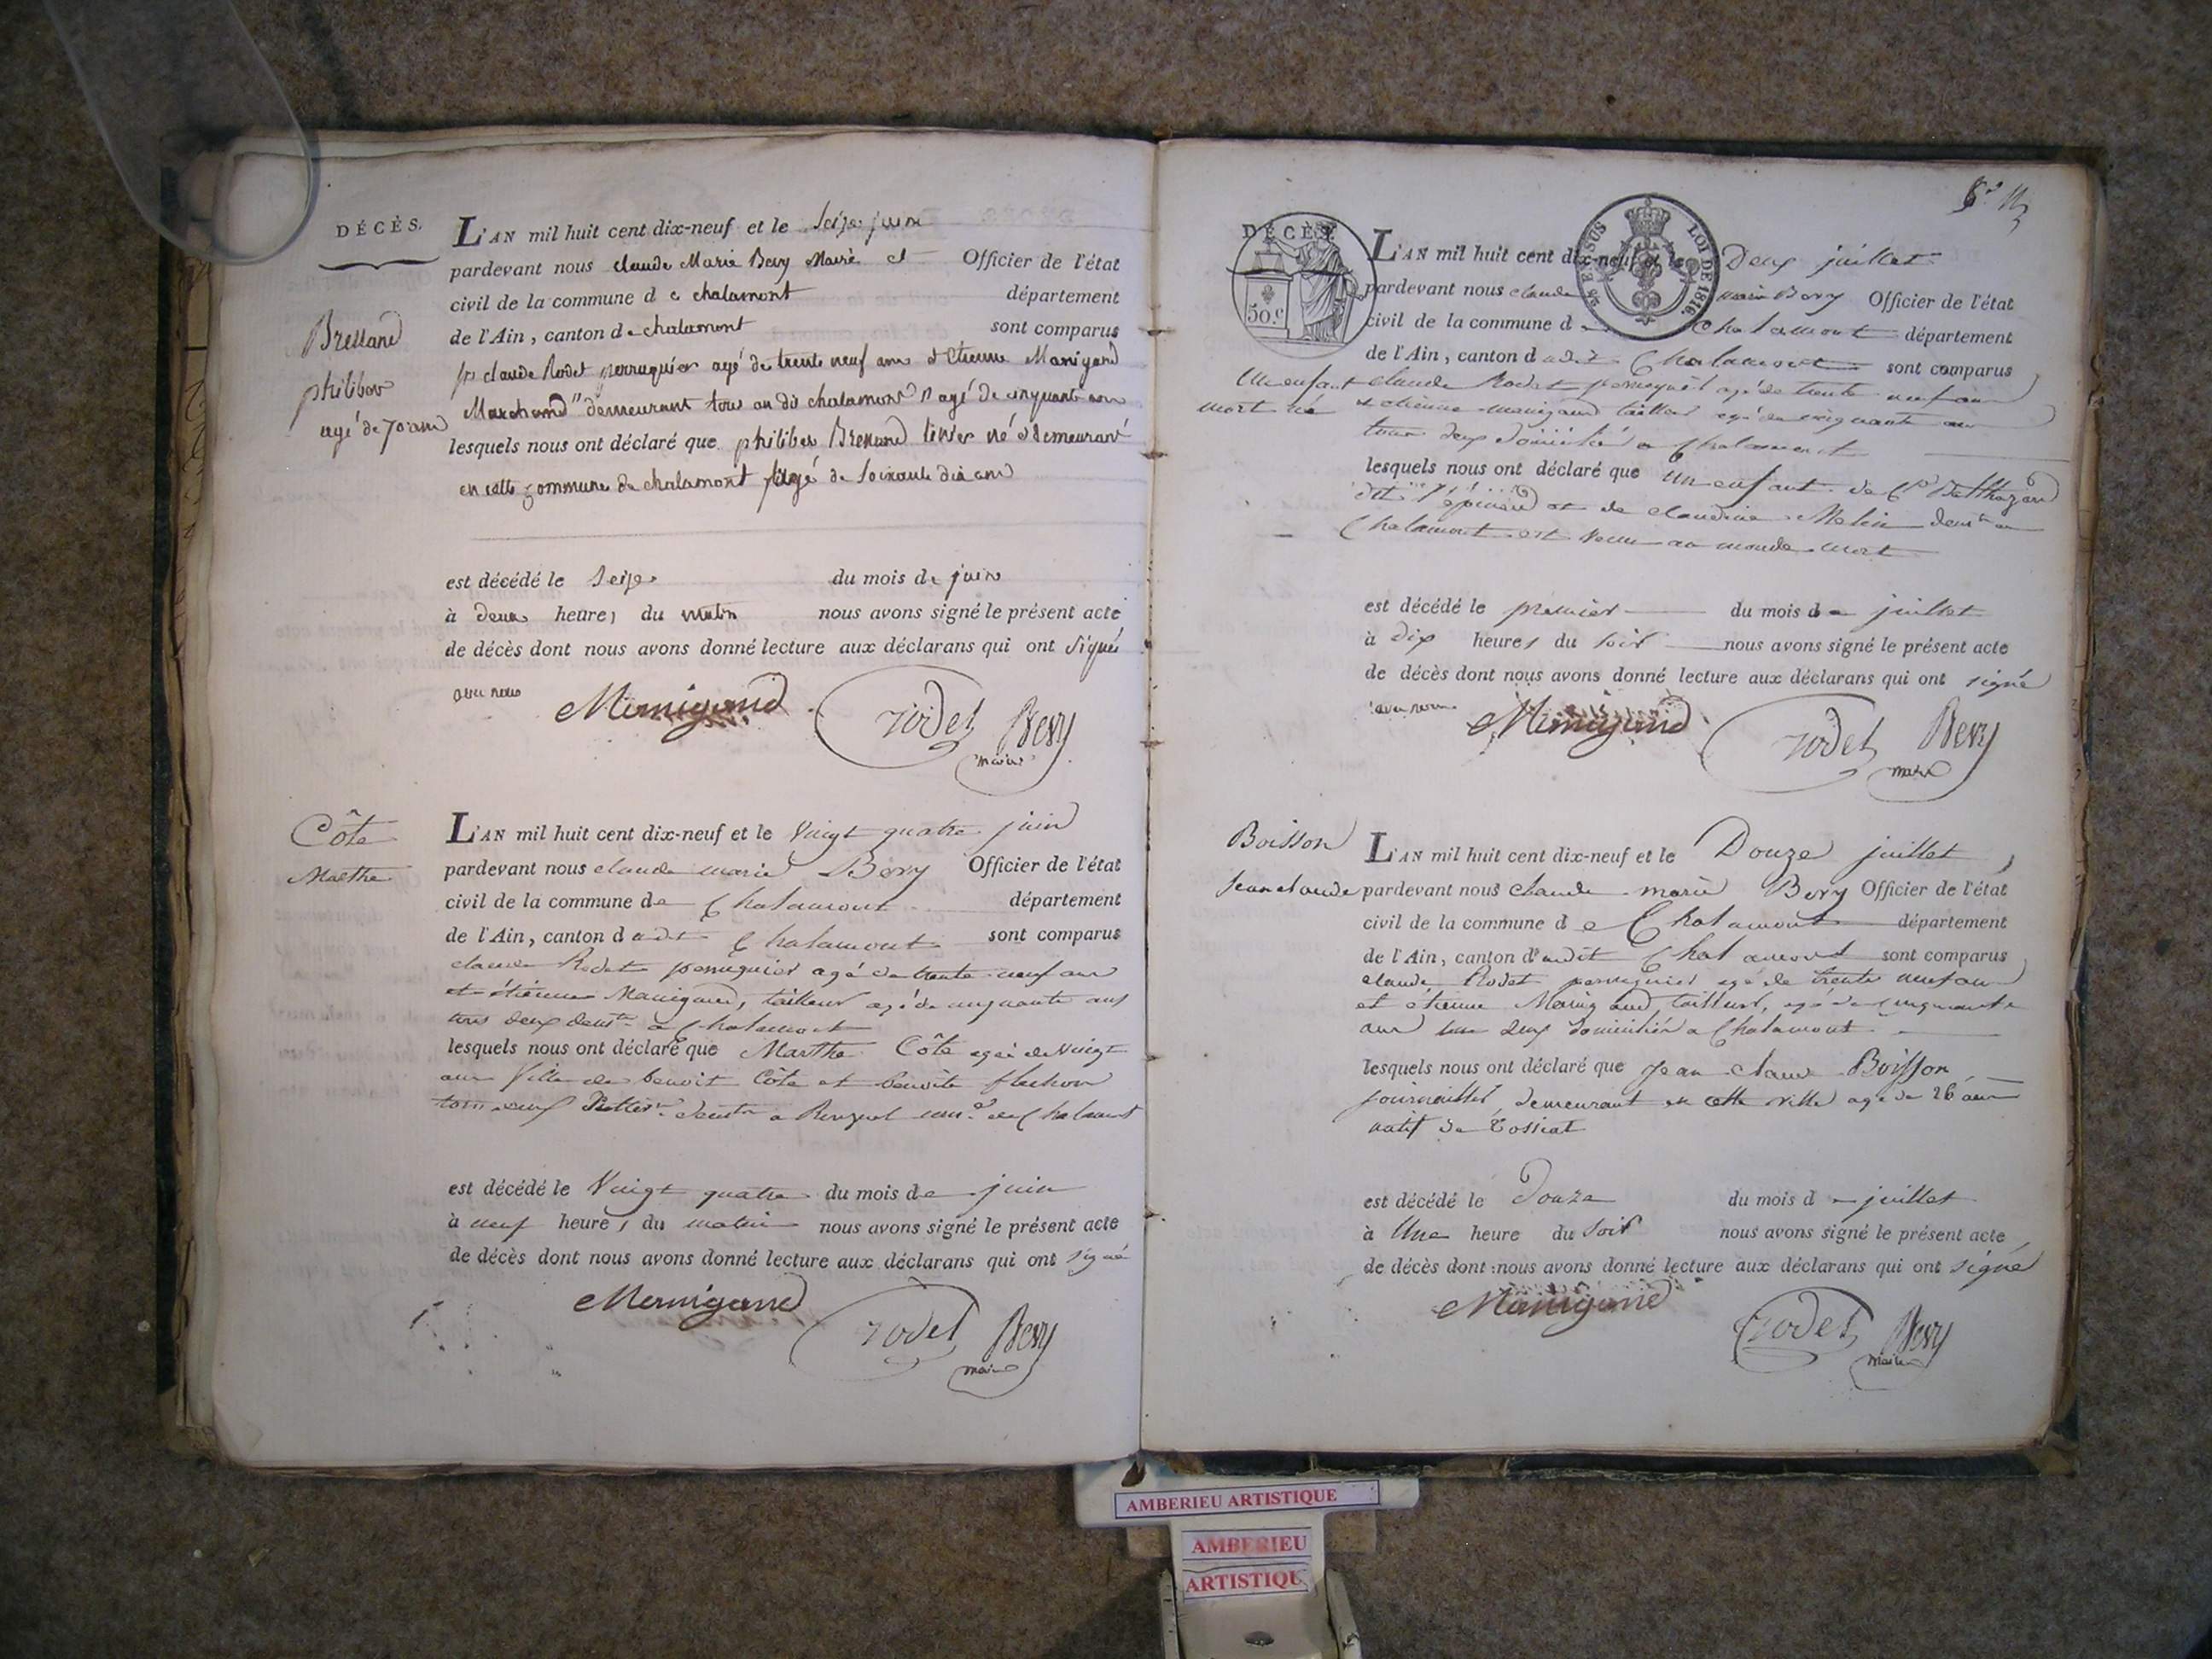 DÉCÈS.
L'AN mil huit cent dix-neuf et le seize juin
pardevant nous claude Marie Bevy Maire et Officier de l'état
civil de la commune d e chalamont département
de l'Ain, canton de chalamont sont comparus
Bressand
philibert
agé de 70 ans
claude Rodet perruquier agé de trente neuf ans et Etienne Manigand
Marchand demeurant tous au dit chalamont agé de cinquante ans
lesquels nous ont déclaré que philibert Bressand né et demeurant
en cette commune de chalamont agé de soixante dix ans
est décédé le seize du mois de juin
à deux heures du matin nous avons signé le présent acte
de décès dont nous avons donné lecture aux déclarans qui ont signés
avec nous
Manigand rodet Bevy
maire
Côte
Marthe
L'AN mil huit cent dix-neuf et le Vingt quatre juin
pardevant nous claude marie Bevy Officier de l'état
civil de la commune de Chalamont département
de l'Ain, canton dudit Chalamont sont comparus
claude Rodet perruquier agé de trente neuf ans
et étienne Manigand, tailleur agé de cinquante ans
tous deux demts a Chalamont
lesquels nous ont déclaré que Marthe Côte agée de Vingt
ans fille de benoit Côte et benoite
tous deux demts a Com.e de Chalamont
est décédé le Vingt quatre du mois de juin
à neuf heures du matin nous avons signé le présent acte
de décès dont nous avons donné lecture aux déclarans qui ont signé
Manigand rodet Bevy
maire
DÉCÈS.
50.c
EN SUS LOI DE 1816
L'AN mil huit cent dix-neuf et le Deux juillet
pardevant nous claude marie Bevy Officier de l'état
civil de la commune de Chalamont département
de l'Ain, canton dudit Chalamont sont comparus
Un enfant
mort né
claude Rodet perruquier agé de trente neuf ans
et étienne manigand tailleur agé de cinquante ans
tous deux domiciliés a Chalamont
lesquels nous ont déclaré que un enfant de Balthazard
dit l'épinard et de claudine Melin demt a
Chalamont est venu au monde mort
est décédé le premier du mois de juillet
à dix heures du soir nous avons signé le présent acte
de décès dont nous avons donné lecture aux déclarans qui ont signé
avec nous
Manigand rodet Bevy
maire
Boisson
Jean claude
L'AN mil huit cent dix-neuf et le Douze juillet
pardevant nous claude marie Bevy Officier de l'état
civil de la commune de Chalamont département
de l'Ain, canton d'udit Chalamont sont comparus
claude Rodet perruquier agé de trente neuf ans
et étienne Manigand tailleur, agé de cinquante
ans tous deux domiciliés a Chalamont
lesquels nous ont déclaré que Jean claude Boisson
journaillier, demeurant en cette ville agé de 26 ans
natif de Tossiat
est décédé le Douze du mois de juillet
à Une heure du soir nous avons signé le présent acte
de décès dont nous avons donné lecture aux déclarans qui ont signé
Manigand rodet Bevy
maire
AMBERIEU ARTISTIQUE
AMBERIEU
ARTISTIQU